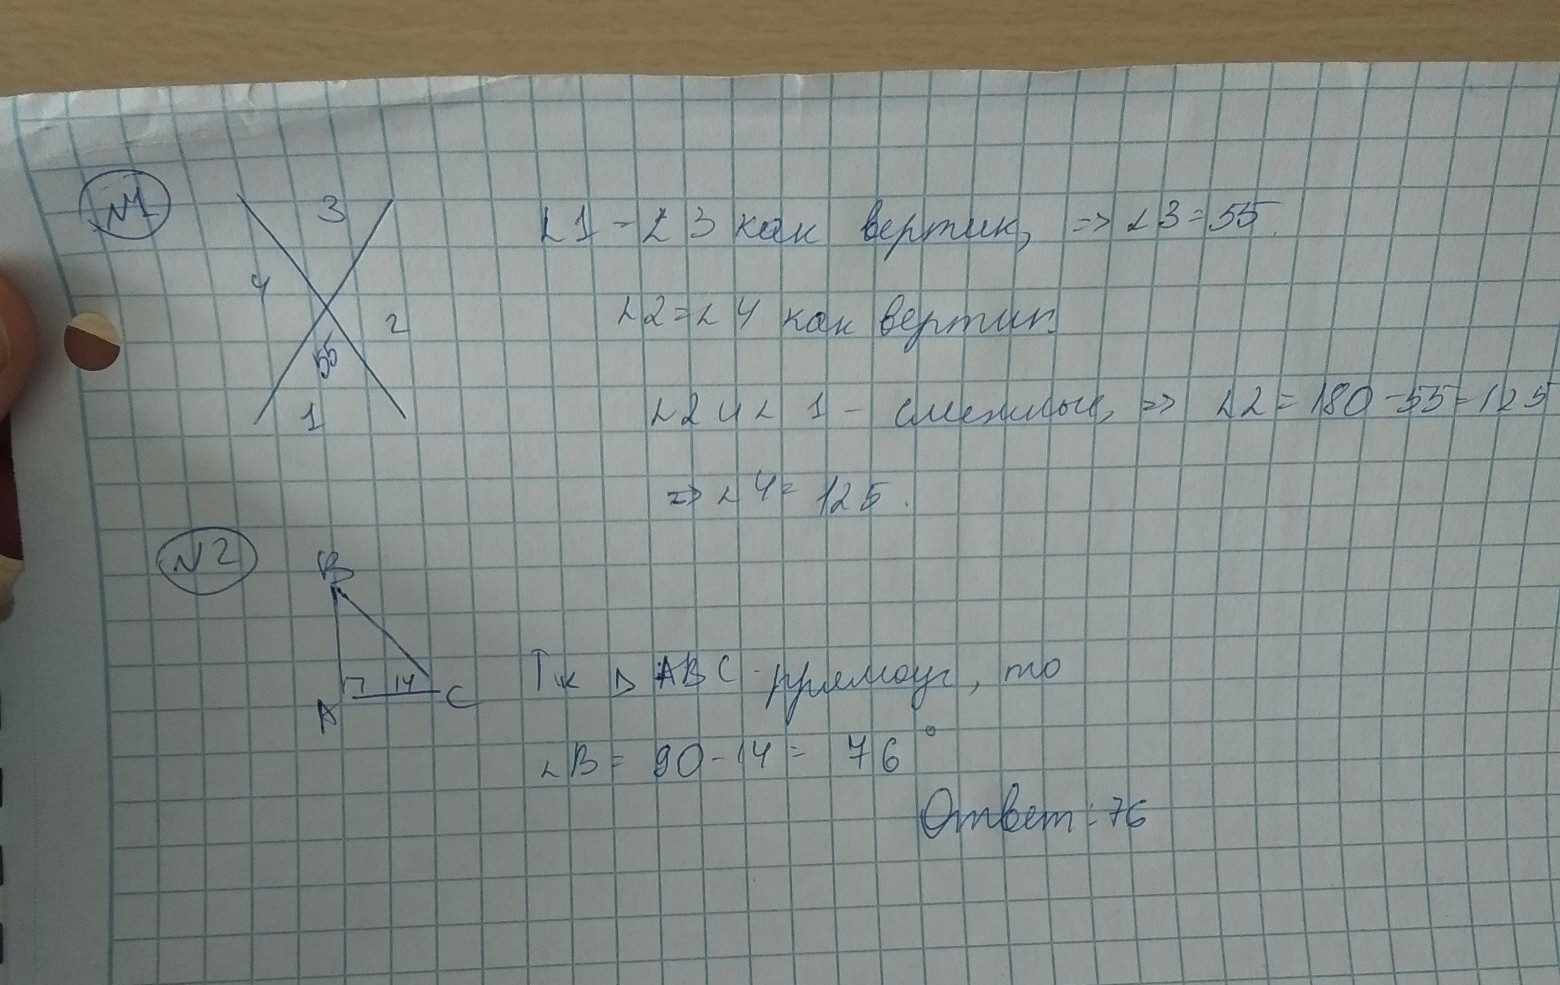 №1
3
4
2
55
1
∠1 - ∠3 как вертик, => ∠3 = 55.
∠2 = ∠4 как вертик.
∠2 и ∠1 - смежные, => ∠2 = 180 - 55 = 125
=> ∠4 = 125.
№2
B
14
A
C
Тк △ ABC - прямоуг, то
∠B = 90 - 14 = 76°
Ответ: 76